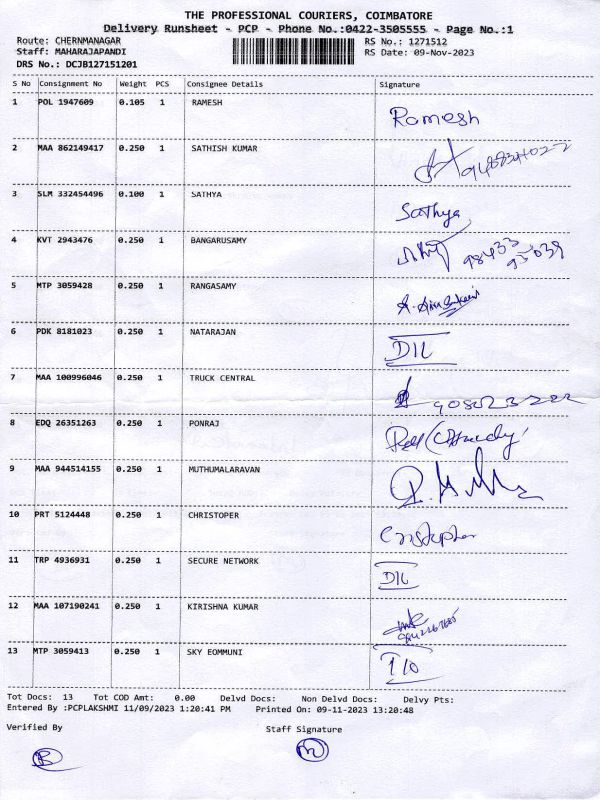 THE PROFESSIONAL COURIERS, COIMBATORE
Delivery Runsheet - PCP - Phone No.:0422-3505555 - Page No.:1
Route: CHERNMANAGAR RS No.: 1271512
Staff: MAHARAJAPANDI RS Date: 09-Nov-2023
DRS No.: DCJB127151201
S No Consignment No Weight PCS Consignee Details Signature
1 POL 1947609 0.105 1 RAMESH Ramesh
2 MAA 862149417 0.250 1 SATHISH KUMAR
3 SLM 332454496 0.100 1 SATHYA Sathya
4 KVT 2943476 0.250 1 BANGARUSAMY 98433 95039
5 MTP 3059428 0.250 1 RANGASAMY
6 PDK 8181023 0.250 1 NATARAJAN DIL
7 MAA 100996046 0.250 1 TRUCK CENTRAL
8 EDQ 26351263 0.250 1 PONRAJ
9 MAA 944514155 0.250 1 MUTHUMALARAVAN
10 PRT 5124448 0.250 1 CHRISTOPER Cristopher
11 TRP 4936931 0.250 1 SECURE NETWORK DIL
12 MAA 107190241 0.250 1 KIRISHNA KUMAR
13 MTP 3059413 0.250 1 SKY EOMMUNI
Tot Docs: 13 Tot COD Amt: 0.00 Delvd Docs: Non Delvd Docs: Delvy Pts:
Entered By :PCPLAKSHMI 11/09/2023 1:20:41 PM Printed On: 09-11-2023 13:20:48
Verified By Staff Signature